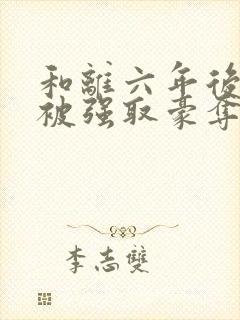 和離六年後
被强取豪奪
李志雙